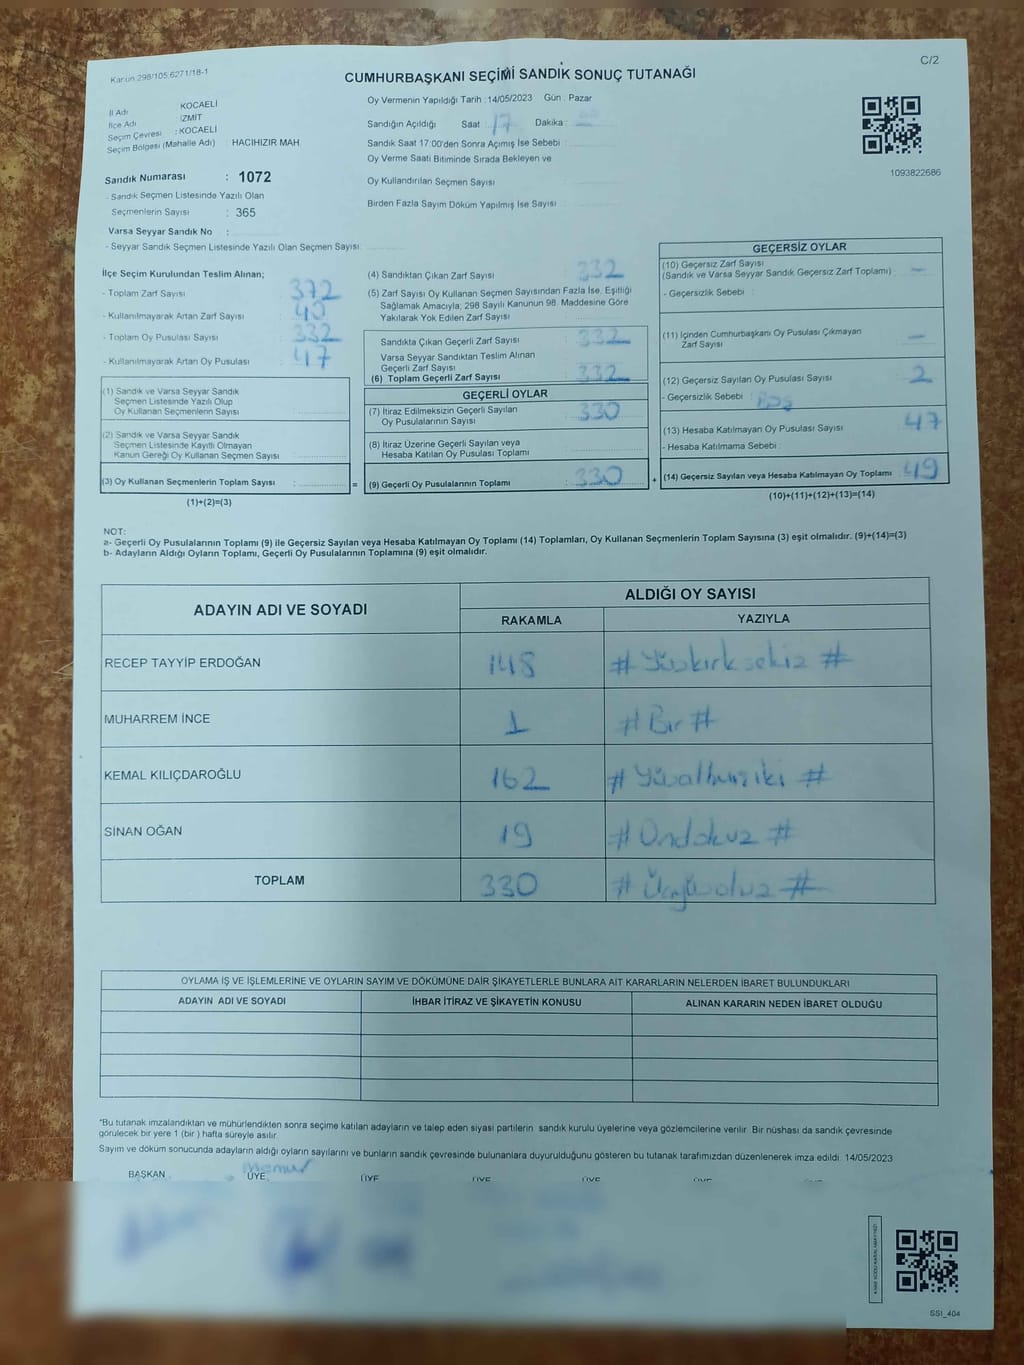 Kanun 298/105,6271/18-1
C/2
CUMHURBAŞKANI SEÇİMİ SANDIK SONUÇ TUTANAĞI
İl Adı KOCAELİ
İlçe Adı İZMİT
Seçim Çevresi : KOCAELİ
Seçim Bölgesi (Mahalle Adı) : HACIHIZIR MAH.
Oy Vermenin Yapıldığı Tarih :14/05/2023 Gün : Pazar
Sandığın Açıldığı Saat : 17 Dakika :
Sandık Saat 17:00'den Sonra Açımış İse Sebebi :
Oy Verme Saati Bitiminde Sırada Bekleyen ve
Oy Kullandırılan Seçmen Sayısı
Birden Fazla Sayım Döküm Yapılmış İse Sayısı
1093822686
Sandık Numarası : 1072
- Sandık Seçmen Listesinde Yazılı Olan
Seçmenlerin Sayısı : 365
Varsa Seyyar Sandık No :
- Seyyar Sandık Seçmen Listesinde Yazılı Olan Seçmen Sayısı:
İlçe Seçim Kurulundan Teslim Alınan;
- Toplam Zarf Sayısı 372
- Kullanılmayarak Artan Zarf Sayısı 40
- Toplam Oy Pusulası Sayısı 332
- Kullanılmayarak Artan Oy Pusulası 47
(1) Sandık ve Varsa Seyyar Sandık
Seçmen Listesinde Yazılı Olup
Oy Kullanan Seçmenlerin Sayısı
(2) Sandık ve Varsa Seyyar Sandık
Seçmen Listesinde Kayıtlı Olmayan
Kanun Gereği Oy Kullanan Seçmen Sayısı
(3) Oy Kullanan Seçmenlerin Toplam Sayısı : =
(1)+(2)=(3)
(4) Sandıktan Çıkan Zarf Sayısı : 332
(5) Zarf Sayısı Oy Kullanan Seçmen Sayısından Fazla İse, Eşitliği
Sağlamak Amacıyla; 298 Sayılı Kanunun 98. Maddesine Göre
Yakılarak Yok Edilen Zarf Sayısı :
Sandıkta Çıkan Geçerli Zarf Sayısı : 332
Varsa Seyyar Sandıktan Teslim Alınan
Geçerli Zarf Sayısı
(6) Toplam Geçerli Zarf Sayısı : 332
GEÇERLİ OYLAR
(7) İtiraz Edilmeksizin Geçerli Sayılan
Oy Pusulalarının Sayısı : 330
(8) İtiraz Üzerine Geçerli Sayılan veya
Hesaba Katılan Oy Pusulası Toplamı
(9) Geçerli Oy Pusulalarının Toplamı : 330 +
GEÇERSİZ OYLAR
(10) Geçersiz Zarf Sayısı
(Sandık ve Varsa Seyyar Sandık Geçersiz Zarf Toplamı) : -
- Geçersizlik Sebebi :
(11) İçinden Cumhurbaşkanı Oy Pusulası Çıkmayan
Zarf Sayısı : -
(12) Geçersiz Sayılan Oy Pusulası Sayısı : 2
- Geçersizlik Sebebi :
(13) Hesaba Katılmayan Oy Pusulası Sayısı : 47
- Hesaba Katılmama Sebebi :
(14) Geçersiz Sayılan veya Hesaba Katılmayan Oy Toplamı : 49
(10)+(11)+(12)+(13)=(14)
NOT:
a- Geçerli Oy Pusulalarının Toplamı (9) ile Geçersiz Sayılan veya Hesaba Katılmayan Oy Toplamı (14) Toplamları, Oy Kullanan Seçmenlerin Toplam Sayısına (3) eşit olmalıdır. (9)+(14)=(3)
b- Adayların Aldığı Oyların Toplamı, Geçerli Oy Pusulalarının Toplamına (9) eşit olmalıdır.
ADAYIN ADI VE SOYADI
ALDIĞI OY SAYISI
RAKAMLA YAZIYLA
RECEP TAYYİP ERDOĞAN 148 # Yüzkırksekiz #
MUHARREM İNCE 1 # Bir #
KEMAL KILIÇDAROĞLU 162 # Yüzaltmışiki #
SİNAN OĞAN 19 # Ondokuz #
TOPLAM 330 # Üçyüzotuz #
OYLAMA İŞ VE İŞLEMLERİNE VE OYLARIN SAYIM VE DÖKÜMÜNE DAİR ŞİKAYETLERLE BUNLARA AİT KARARLARIN NELERDEN İBARET BULUNDUKLARI
ADAYIN ADI VE SOYADI İHBAR İTİRAZ VE ŞİKAYETİN KONUSU ALINAN KARARIN NEDEN İBARET OLDUĞU
*Bu tutanak imzalandıktan ve mühürlendikten sonra seçime katılan adayların ve talep eden siyasi partilerin sandık kurulu üyelerine veya gözlemcilerine verilir. Bir nüshası da sandık çevresinde
görülecek bir yere 1 (bir ) hafta süreyle asılır.
Sayım ve döküm sonucunda adayların aldığı oyların sayılarını ve bunların sandık çevresinde bulunanlara duyurulduğunu gösteren bu tutanak tarafımızdan düzenlenerek imza edildi. 14/05/2023
Memur
BAŞKAN ÜYE ÜYE ÜYE ÜYE ÜYE
SSI_404